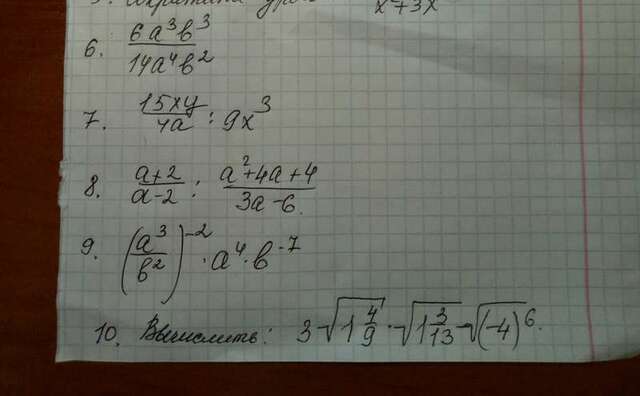 5. Сократить x²+3x
6. 6a³b³/14a⁴b²
7. 15xy/4a : 9x³
8. a+2/a-2 : a²+4a+4/3a-6.
9. (a³/b²)⁻² · a⁴ · b⁻⁷
10. Вычислить: 3√1 4/9 · √1 3/13 - √(-4)⁶.